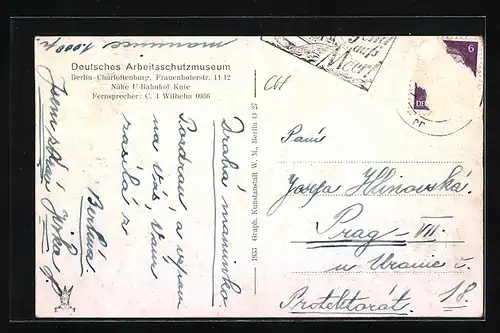 Deutsches Arbeitsschutzmuseum
Berlin-Charlottenburg, Frauenhoferstr. 11-12
Nähe U-Bahnhof Knie
Fernsprecher: C. 4 Wilhelm 0936
Drahá maminko
Pozdrav a
na Vás, Vám
zasílá z
Berlína
Jirka
1933 Graph. Kunstanstalt W. M. Berlin O 27
aufs
Meer!
6
Paní
Josefa Hlinovská.
Prag-VII.
u Uranie č.
18.
Protektorát.